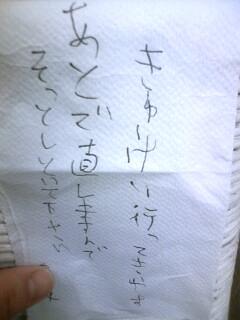 きゅーけい行ってきます
あとで直しますんで
そっとしといて下さい